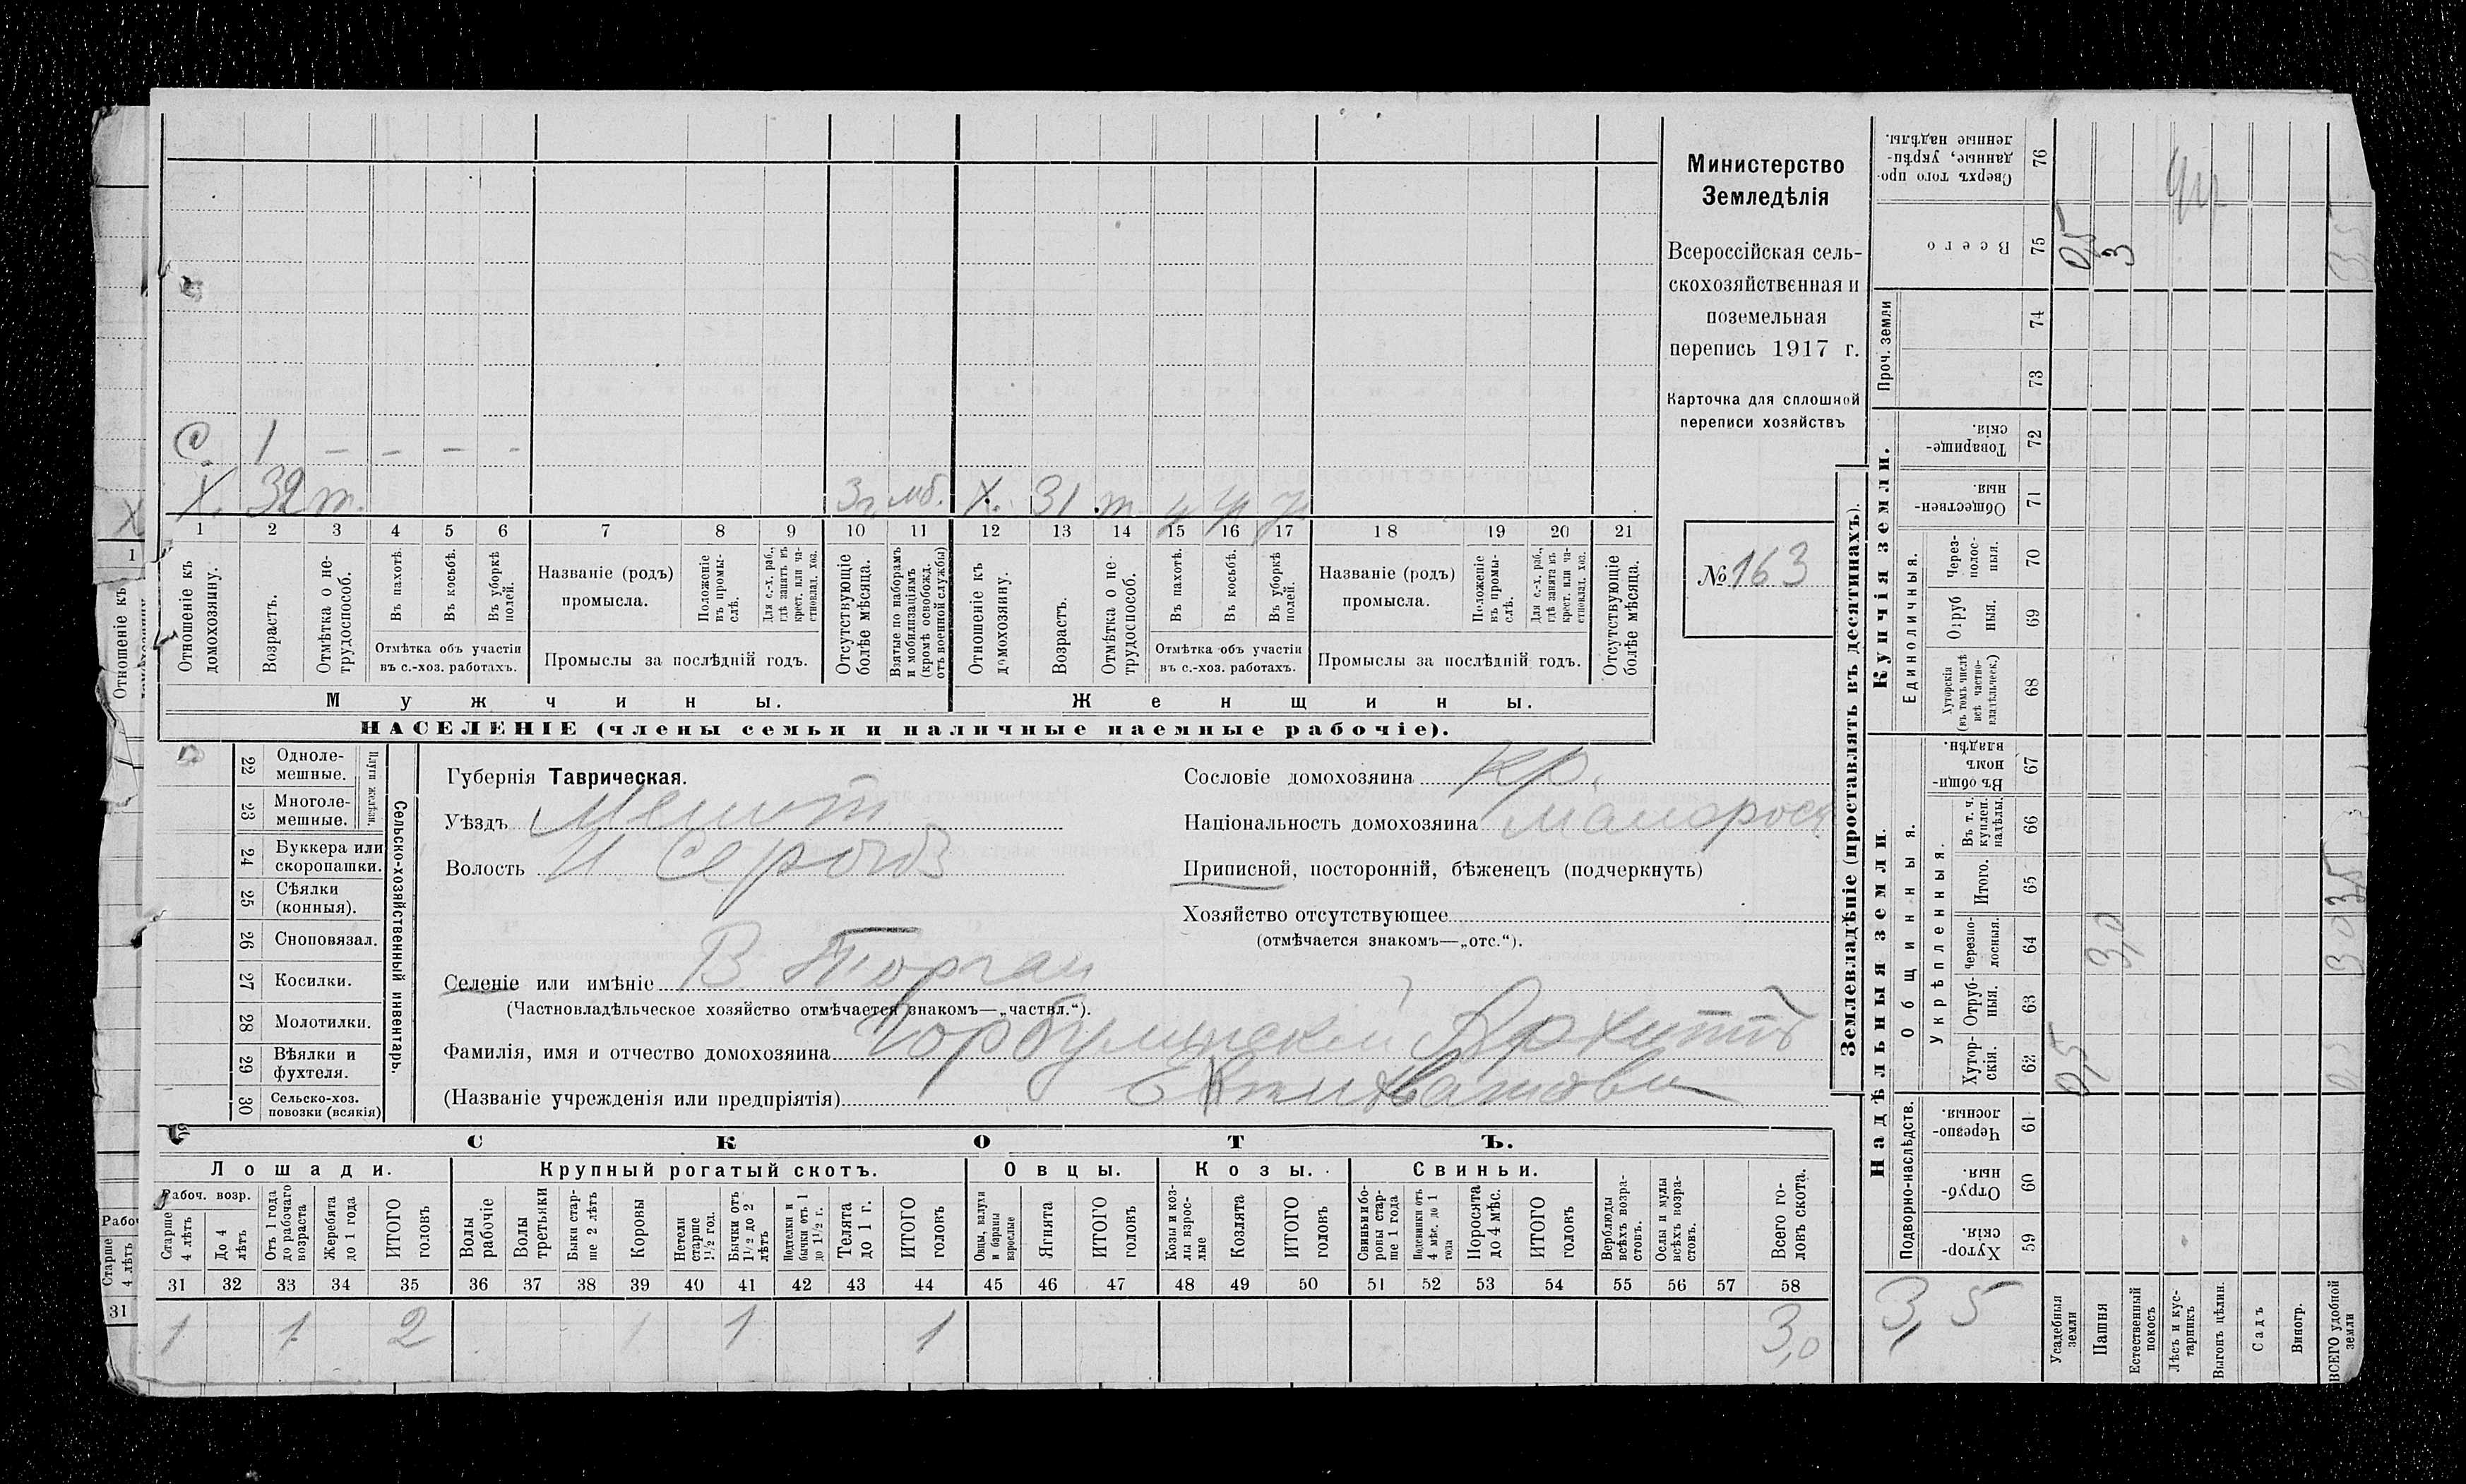 Министерство
Земледѣлія
Всероссійская сель-
скохозяйственная и
поземельная
перепись 1917 г.
Карточка для сплошной
переписи хозяйствъ
№ 163
С. 1 – – – –
Х. 32 т. 3 г. мб. Х. 31 т.
1 2 3 4 5 6 7 8 9 10 11 12 13 14 15 16 17 18 19 20 21
Отношеніе къ домохозяину.
Возрастъ.
Отмѣтка о не-трудоспособ.
Въ пахотѣ.
Въ косьбѣ.
Въ уборкѣ полей.
Отмѣтка объ участіи
въ с.-хоз. работахъ.
Названіе (родъ)
промысла.
Положеніе въ промы-слѣ.
Для с.-х. раб., гдѣ занятъ въ крест. или ча-стновлад. хоз.
Промыслы за послѣдній годъ.
Отсутствующіе болѣе мѣсяца.
Взятые по наборамъ и мобилизаціямъ (кромѣ освобожд. отъ военной службы)
Отношеніе къ домохозяину.
Возрастъ.
Отмѣтка о не-трудоспособ.
Въ пахотѣ.
Въ косьбѣ.
Въ уборкѣ полей.
Отмѣтка объ участіи
въ с.-хоз. работахъ.
Названіе (родъ)
промысла.
Положеніе въ промы-слѣ.
Для с.-х. раб., гдѣ занята въ крест. или ча-стновлад. хоз.
Промыслы за послѣдній годъ.
Отсутствующіе болѣе мѣсяца.
Мужчины.
Женщины.
НАСЕЛЕНІЕ (члены семьи и наличные наемные рабочіе).
22 Одноле-мешные.
23 Многоле-мешные.
Плуги желѣзн.
24 Буккера или скоропашки.
25 Сѣялки (конныя).
26 Сноповязал.
27 Косилки.
28 Молотилки.
29 Вѣялки и фухтеля.
30 Сельско-хоз. повозки (всякія)
Сельско-хозяйственный инвентарь.
Губернія Таврическая.
Уѣздъ Мелит
Волость Н Серогоз
Селеніе или имѣніе В Торгаи
(Частновладѣльческое хозяйство отмѣчается знакомъ—„частвл.“).
Фамилія, имя и отчество домохозяина
(Названіе учрежденія или предпріятія)
Сословіе домохозяина кр.
Національность домохозяина малорос
Приписной, посторонній, бѣженецъ (подчеркнуть)
Хозяйство отсутствующее
(отмѣчается знакомъ—„отс.“).
СКОТЪ.
Лошади. Крупный рогатый скотъ. Овцы. Козы. Свиньи.
Рабоч. возр.
Старше 4 лѣтъ
До 4 лѣтъ
Отъ 1 года до рабочаго возраста
Жеребята до 1 года
ИТОГО головъ
Волы рабочіе
Волы третьяки
Быки стар-ше 2 лѣтъ
Коровы
Нетели старше 1½ год.
Бычки отъ 1½ до 2 лѣтъ
Подтелки и бычки отъ 1 до 1½ г.
Телята до 1 г.
ИТОГО головъ
Овцы, валухи и бараны взрослые
Ягнята
ИТОГО головъ
Козы и коз-лы взрос-лые
Козлята
ИТОГО головъ
Свиньи и бо-ровы стар-ше 1 года
Подсвинки отъ 4 мѣс. до 1 года
Поросята до 4 мѣс.
ИТОГО головъ
Верблюды всѣхъ возра-стовъ.
Ослы и мулы всѣхъ возра-стовъ.
Всего го-ловъ скота.
31 32 33 34 35 36 37 38 39 40 41 42 43 44 45 46 47 48 49 50 51 52 53 54 55 56 57 58
1 1 2 1 1 1 3,0
Землевладѣніе (проставлять въ десятинахъ).
Надѣльныя земли.
Купчія земли.
Проч. земли
Подворно-наслѣдств.
Общинныя.
Укрѣпленныя.
Единоличныя.
Хутор-скія. 59
Отруб-ныя. 60
Черезпо-лосныя. 61
Хутор-скія. 62
Отруб-ныя. 63
Черезпо-лосныя. 64
Итого. 65
Въ т. ч. куплен. надѣлы. 66
Въ общин-номъ владѣн. 67
Хуторскія (въ томъ числѣ всѣ частно-владѣльческ.) 68
Отруб-ныя. 69
Через-полос-ныя. 70
Обществен-ныя. 71
Товарище-скія. 72
73
74
Всего 75
Сверхъ того про-данные, укрѣп-ленные надѣлы. 76
Усадебныя земли
Пашня
Естественный покосъ
Лѣсъ и кус-тарникъ
Выгонъ цѣлин.
Садъ
Виногр.
ВСЕГО удобной земли
3,5
0,5
3,0
0,5
3
3,0
3,5
Х
1
Отношеніе къ
Старше 4 лѣтъ
31